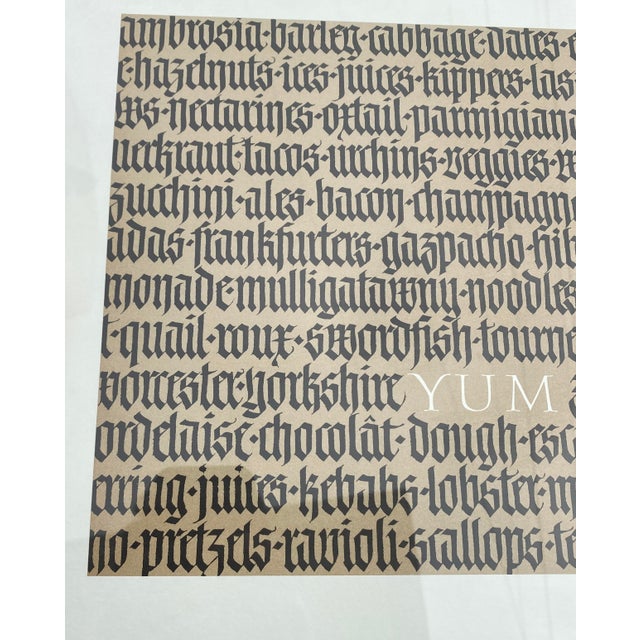 ambrosia·barley·cabbage·dates·
e·hazelnuts·ices·juices·kippers·las
ws·nectarines·oxtail·parmigian
uerkraut·tacos·urchins·veggies·w
zucchini·ales·bacon·champagn
adas·frankfurters·gazpacho·hib
monade·mulligatawny·noodles
t·quail·roux·swordfish·tourne
worcester·yorkshire YUM
ordelaise·chocolât·dough·esc
erring·juices·kebabs·lobster·m
no·pretzels·ravioli·scallops·te